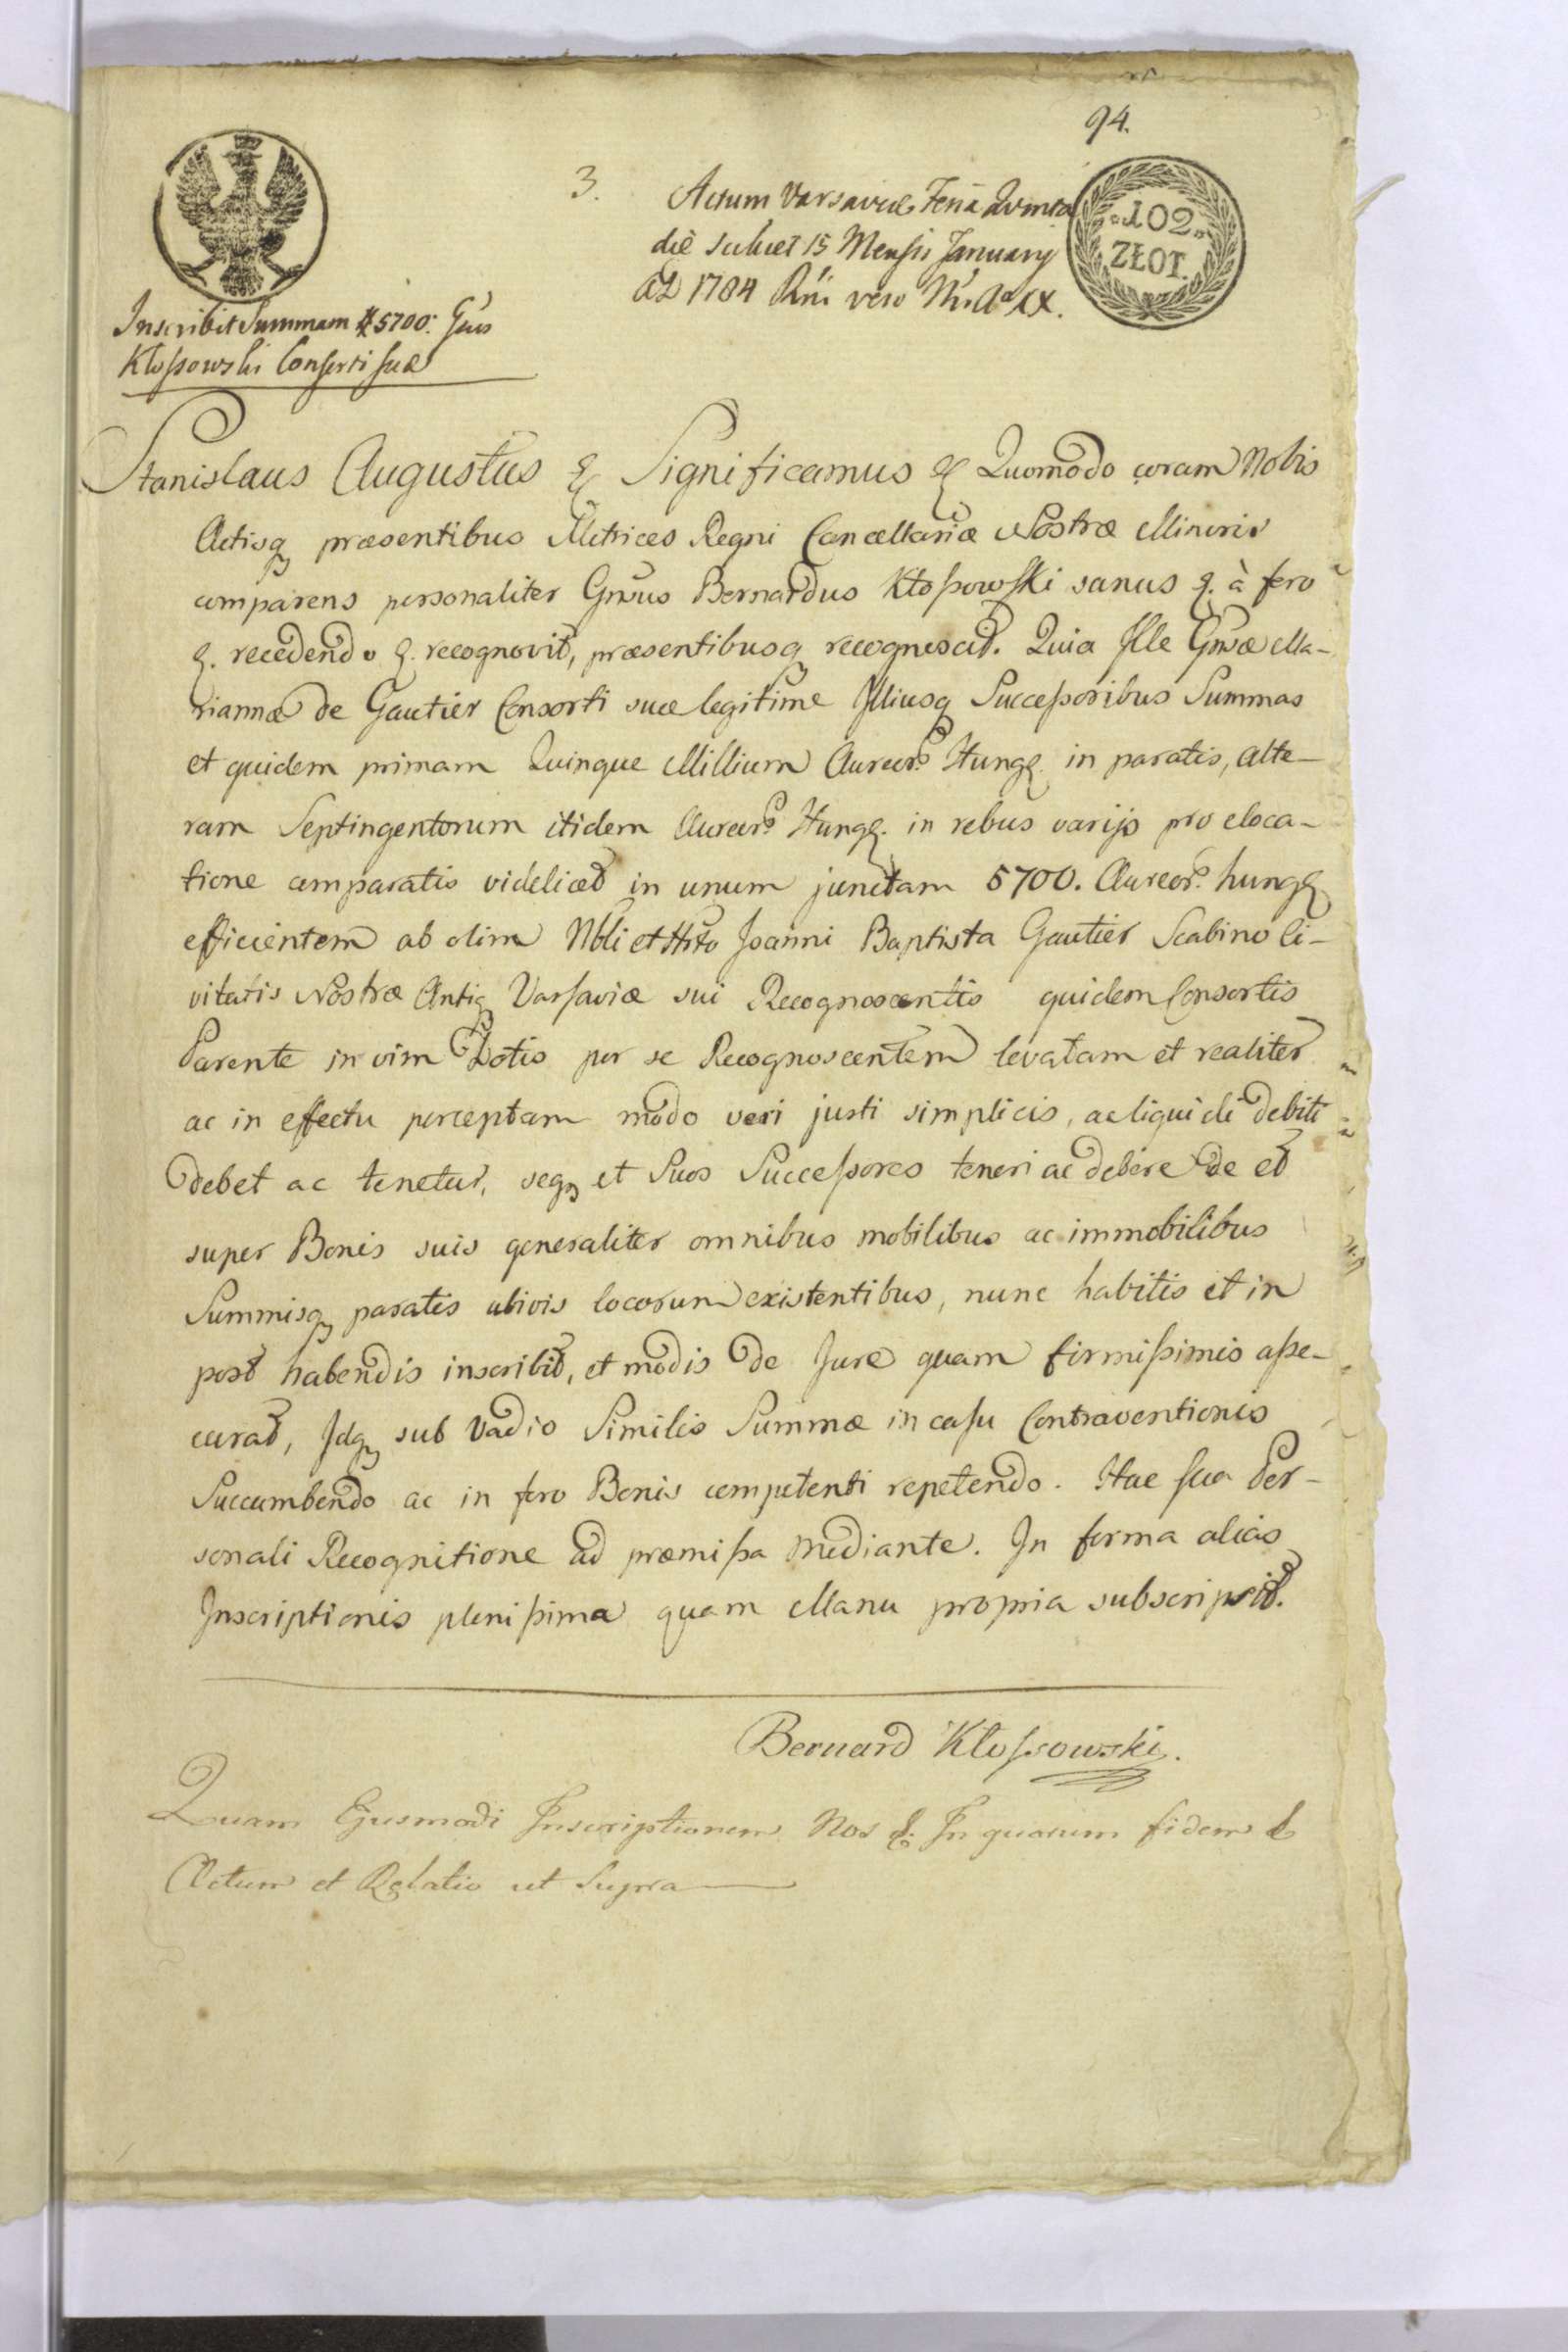 94.
3.
Actum Varsaviæ Feria Quinta
die scilicet 15 Mensis January
AD 1784 Rni vero Nri Ao XX.
102
ZŁOT.
Inscribit Summam # 5700: Gsus
Kłossowski Consorti suæ
Stanislaus Augustus & Significamus & Quomodo coram Nobis
Actisq præsentibus Metrices Regni Cancellariæ Nostræ Minoris
comparens personaliter Gnsus Bernardus Kłossowski sanus &. à foro
&. recedendo &. recognovit, præsentibusq recognoscit. Quia Ille Gnsæ Ma-
riannæ de Gautier Consorti suæ legitime Illiusq Successoribus Summas
et quidem primam Quinque Millium Aureor. Hung&. in paratis, alte-
ram Septingentorum itidem Aureor. Hung&. in rebus varijs pro eloca-
tione comparatis videlicet in unum junctam 5700. Aureor. hung&
efficientem ab olim Nbli et Joanni Baptista Gautier Scabino Ci-
vitatis Nostræ Antiq Varsaviæ sui Recognoscentis quidem Consortis
Parente in vim Dotis per se Recognoscentem levatam et realiter
ac in effectu perceptam modo veri justi simplicis, ac liquidi debiti
debet ac tenetur, seq et Suos Successores teneri ac debere de et
super Bonis suis generaliter omnibus mobilibus ac immobilibus
Summisq paratis ubivis locorum existentibus, nunc habitis et in
post habendis inscribit, et modis de Jure quam firmissimis asse-
curat, Idq sub vadio Similis Summæ in casu Contraventionis
Succumbendo ac in foro Bonis competenti repetendo. Hac sua Per-
sonali Recognitione ad præmissa mediante. In forma alias
Inscriptionis plenissima quam Manu propria subscripsit.
Bernard Kłossowski.
Quam Ejusmodi Inscriptionem Nos &. In quorum fidem &
Actum et Relatio ut Supra